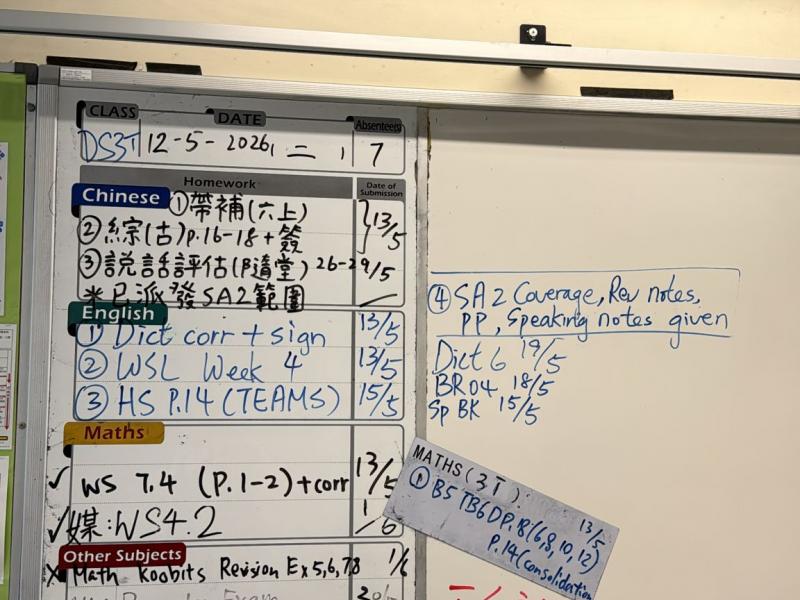 CLASS DATE Absentees
DS3T 12-5-2026, 二, 7
Homework Date of Submission
Chinese ①帶補(六上)
②綜(古)p.16-18+簽 13/5
③說話評估(隨堂) 26-29/5
*已派發SA2範圍
English
① Dict corr + sign 13/5
② WSL Week 4 13/5
③ HS P.14 (TEAMS) 15/5
Maths
✓ WS 7.4 (P.1-2)+corr 13/5
✓媒:WS4.2 1/6
Other Subjects
x Math Koobits Revision Ex 5,6,7,8 1/6
④ SA2 Coverage, Rev notes,
PP, Speaking notes given
Dict 6 19/5
BR04 18/5
Sp BK 15/5
MATHS (3T):
① B5 TB6D P.18(6,8,10,12) 13/5
P.14(consolidation